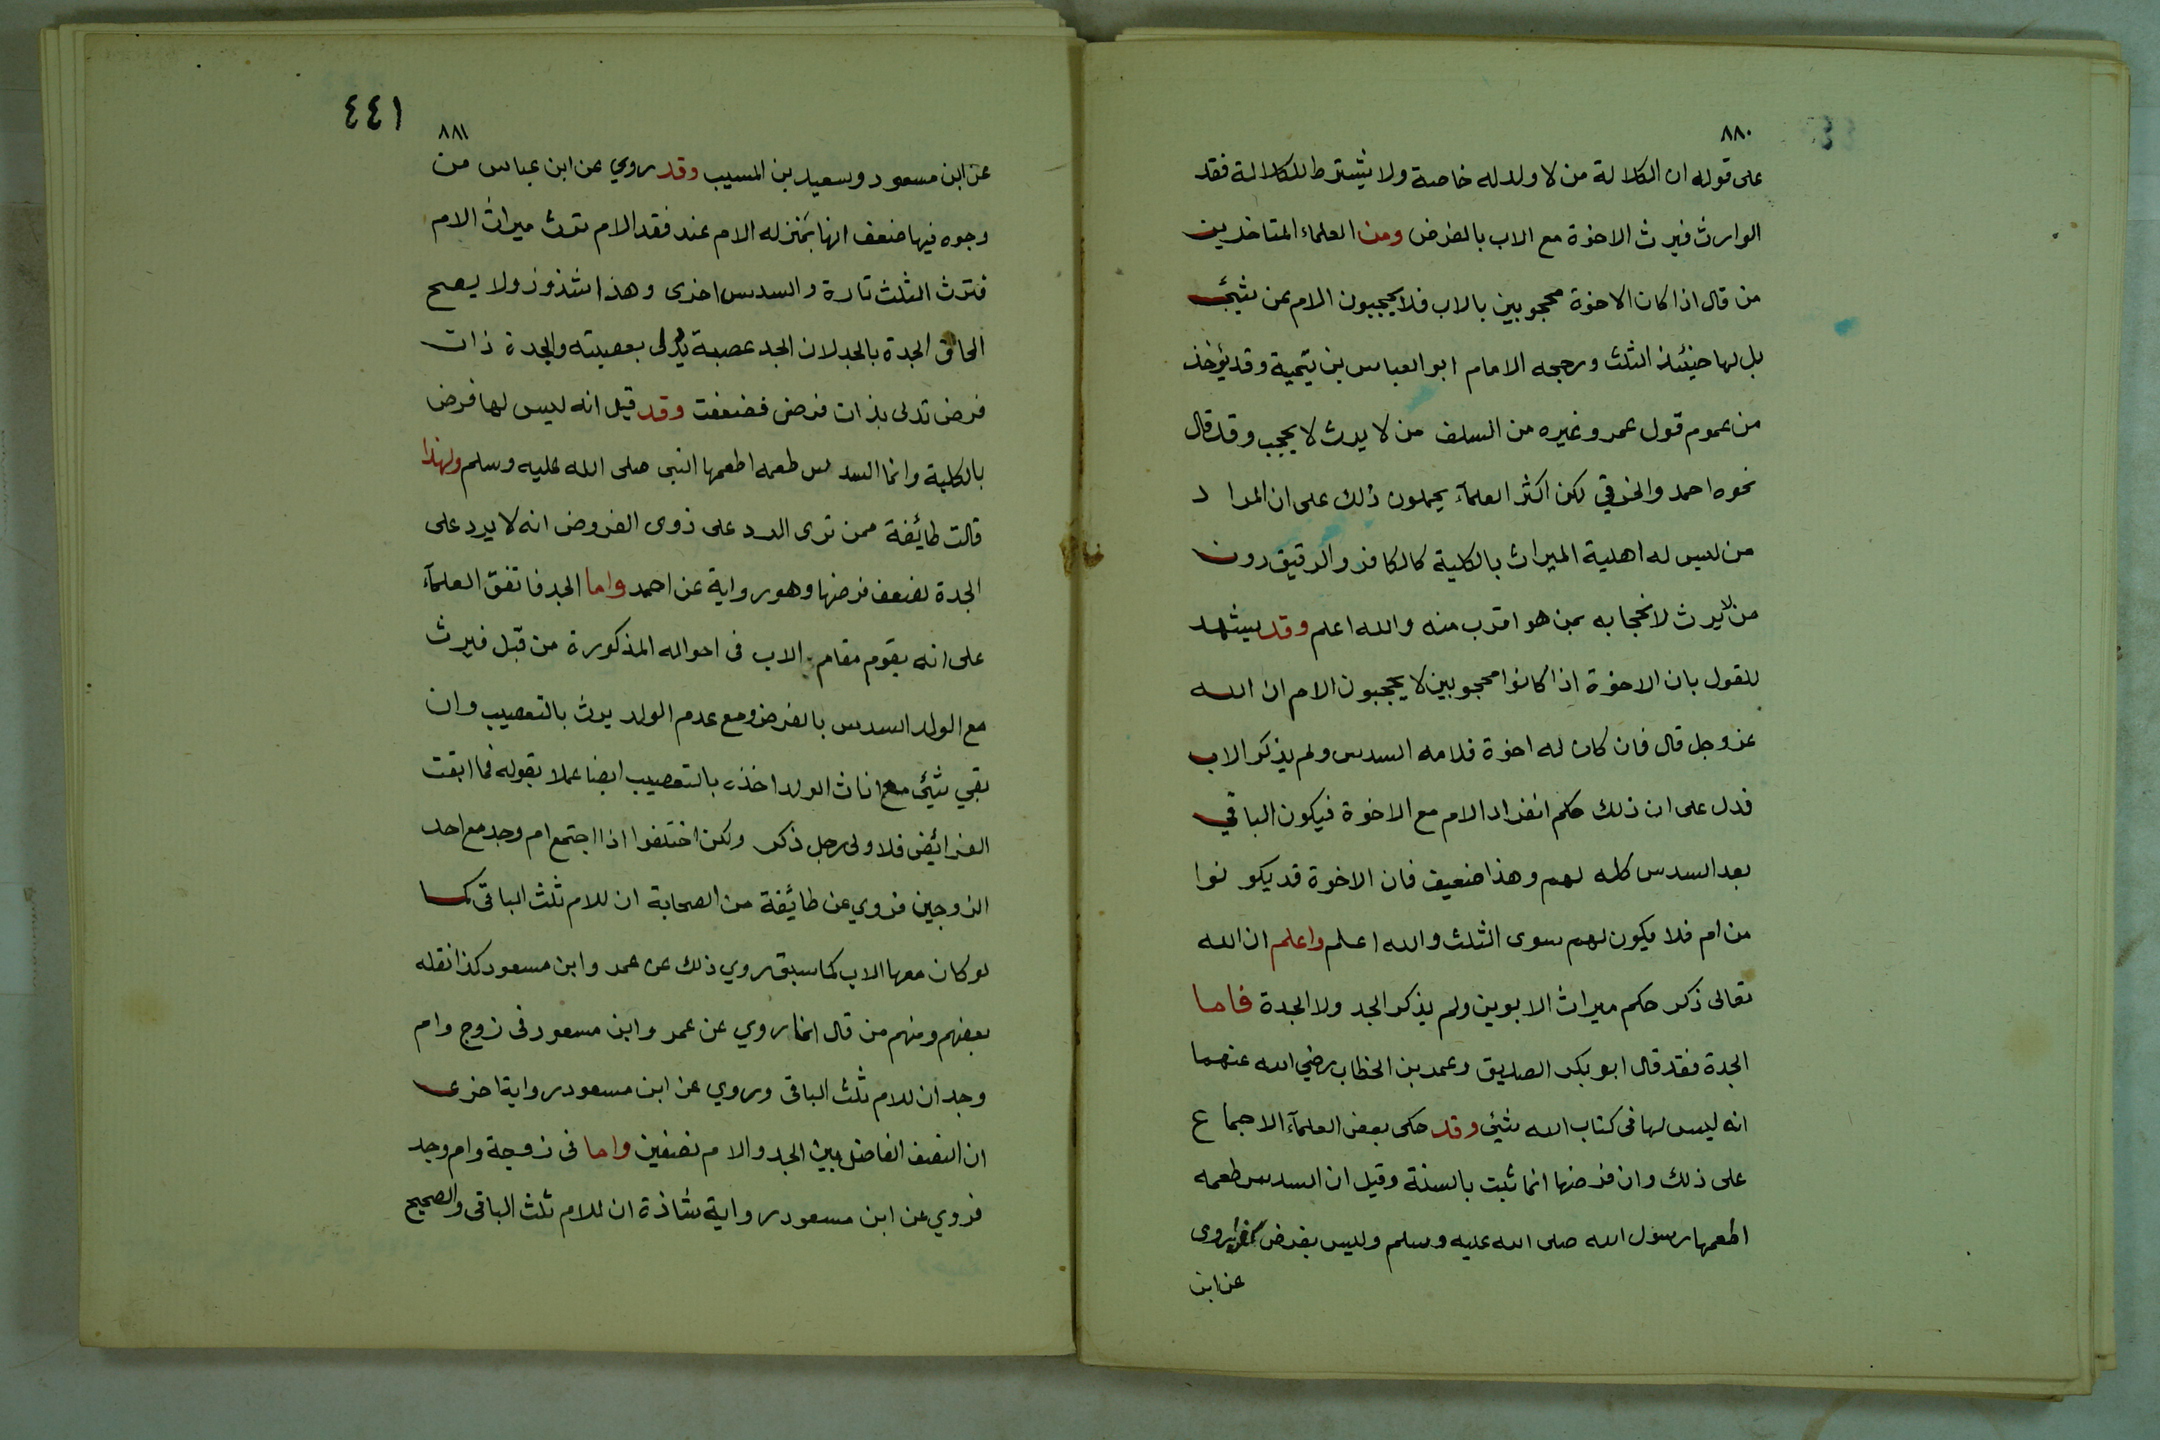 ٨٨٠
على قوله ان الكلالة من لا ولد له خاصة ولا يشترط للكلالة فقد
الوارث فيرث الاخوة مع الاب بالفرض ومن العلماء المتاخرين
من قال اذا كان الاخوة محجوبين بالاب فلا يحجبون الام عن شيئ
بل لها حينئذ الثلث ورجحه الامام ابو العباس بن تيمية وقد يؤخذ
من عموم قول عمر وغيره من السلف من لا يرث لا يحجب وقد قال
نحوه احمد والخرقي لكن اكثر العلمآء يحملون ذلك على ان المراد
من ليس له اهلية الميراث بالكلية كالكافر والرقيق دون
من لا يرث لانحجابه بمن هو اقرب منه والله اعلم وقد يشهد
للقول بان الاخوة اذا كانوا محجوبين لا يحجبون الام ان الله
عز وجل قال فان كان له اخوة فلامه السدس ولم يذكر الاب
فدل على ان ذلك حكم انفراد الام مع الاخوة فيكون الباقي
بعد السدس كله لهم وهذا ضعيف فان الاخوة قد يكونوا
من ام فلا يكون لهم سوى الثلث والله اعلم واعلم ان الله
تعالى ذكر حكم ميراث الابوين ولم يذكر الجد ولا الجدة فاما
الجدة فقد قال ابو بكر الصديق وعمر بن الخطاب رضي الله عنهما
انه ليس لها فى كتاب الله شيئ وقد حكى بعض العلمآء الاجماع
على ذلك وان فرضها انما ثبت بالسنة وقيل ان السدس طعمه
اطعمها رسول الله صلى الله عليه وسلم وليس بفرض كذا روى
عن ابن
٤٤١
٨٨١
عن ابن مسعود وسعيد بن المسيب وقد روي عن ابن عباس من
وجوه فيها ضعف انها بمنزله الام عند فقد الام ترث ميراث الام
فترث الثلث تارة والسدس اخرى وهذا شذوذ ولا يصح
الحاق الجدة بالجد لان الجد عصبة يدلى بعصبته والجدة ذات
فرض تدلى بذات فرض فضعفت وقد قيل انه ليس لها فرض
بالكلية وانما السدس طعمه اطعمها النبى صلى الله عليه وسلم ولهذا
قالت طائفة ممن ترى الرد على ذوى الفروض انه لا يرد على
الجدة لضعف فرضها وهو رواية عن احمد واما الجد فاتفق العلمآء
على انه يقوم مقام الاب فى احواله المذكورة من قبل فيرث
مع الولد السدس بالفرض ومع عدم الولد يرث بالتعصيب وان
بقي شيئ مع اناث الولد اخذه بالتعصيب ايضا عملا بقوله فما ابقت
الفرائض فلاولى رجل ذكر ولكن اختلفوا اذا اجتمع ام وجد مع احد
الزوجين فروي عن طائفة من الصحابة ان للام ثلث الباقى كما
لو كان معها الاب كما سبق روي ذلك عن عمر وابن مسعود كذا نقله
بعضهم ومنهم من قال انما روي عن عمر وابن مسعود فى زوج وام
وجد ان للام ثلث الباقى وروي عن ابن مسعود رواية اخرى
ان النصف الفاضل بين الجد والام نصفين واما فى زوجة وام وجد
فروي عن ابن مسعود رواية شاذة ان للام ثلث الباقى والصحيح